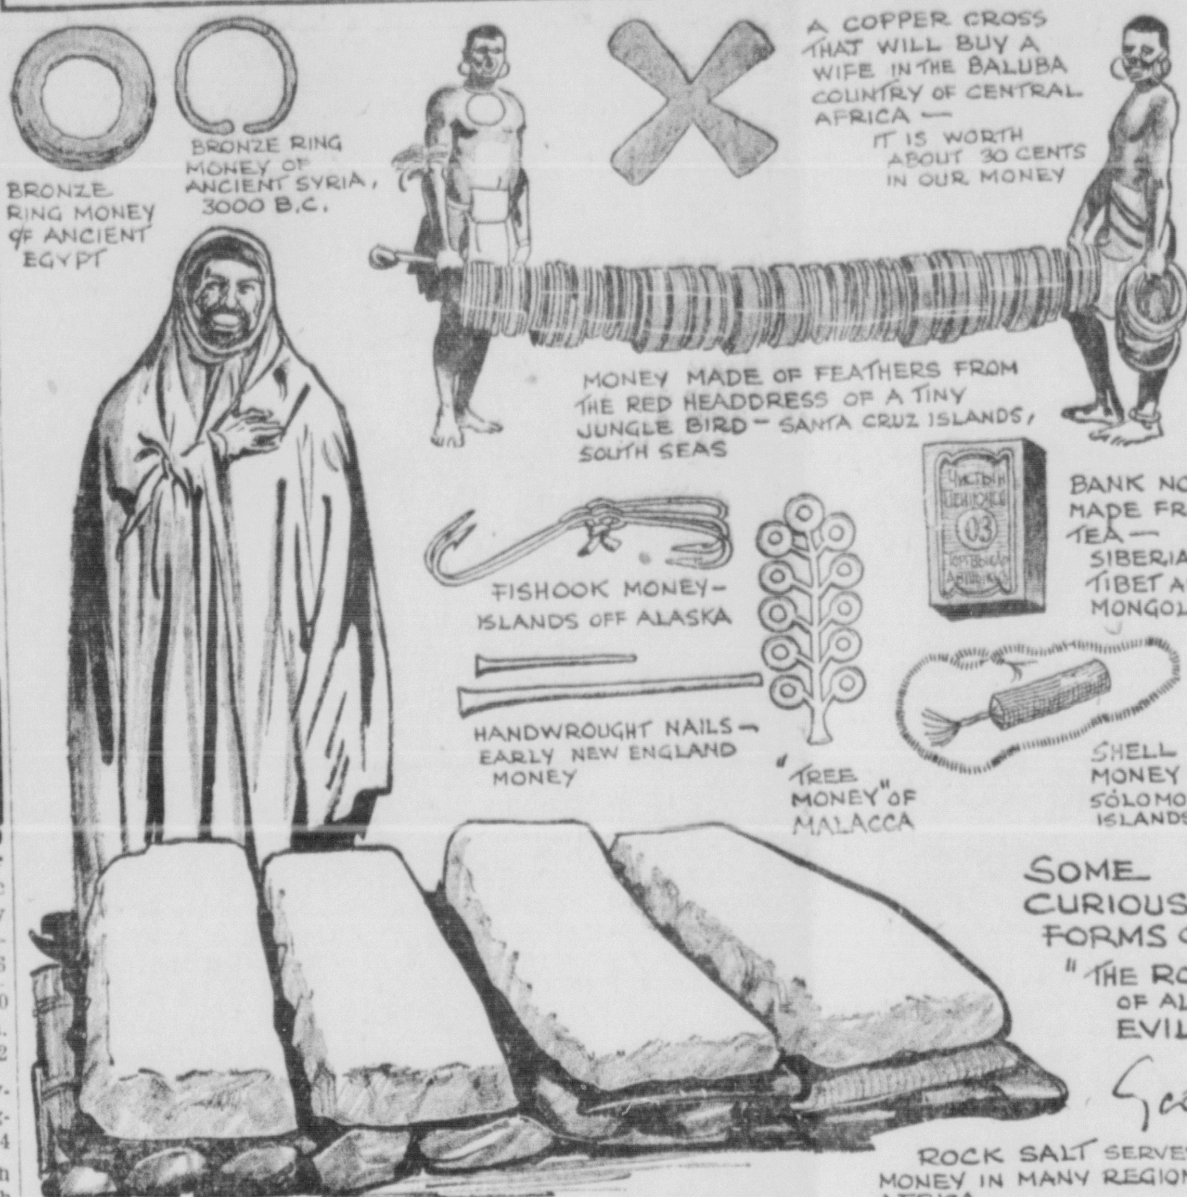 BRONZE
RING MONEY
OF ANCIENT
EGYPT
BRONZE RING
MONEY OF
ANCIENT SYRIA,
3000 B.C.
A COPPER CROSS
THAT WILL BUY A
WIFE IN THE BALUBA
COUNTRY OF CENTRAL
AFRICA —
IT IS WORTH
ABOUT 30 CENTS
IN OUR MONEY
MONEY MADE OF FEATHERS FROM
THE RED HEADDRESS OF A TINY
JUNGLE BIRD — SANTA CRUZ ISLANDS,
SOUTH SEAS
FISHOOK MONEY —
ISLANDS OFF ALASKA
HANDWROUGHT NAILS —
EARLY NEW ENGLAND
MONEY
"TREE
MONEY" OF
MALACCA
03
BANK NO
MADE FR
TEA —
SIBERIA
TIBET A
MONGOL
SHELL
MONEY
SOLOMO
ISLANDS
SOME
CURIOUS
FORMS O
"THE RO
OF AL
EVIL
ROCK SALT SERVE
MONEY IN MANY REGION
AFRICA